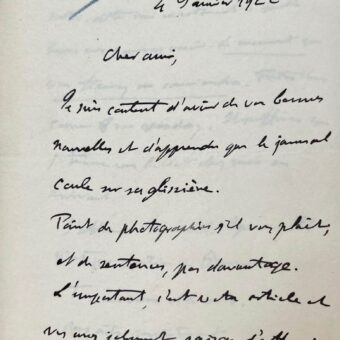 4 Janvier 192
Cher ami,
Je suis content d'avoir de vos bonnes
nouvelles et d'apprendre que le journal
coule sur sa glissière.
Point de photographies s'il vous plaît,
et de sentences, pas davantage.
L'important, c'est notre article et
vos